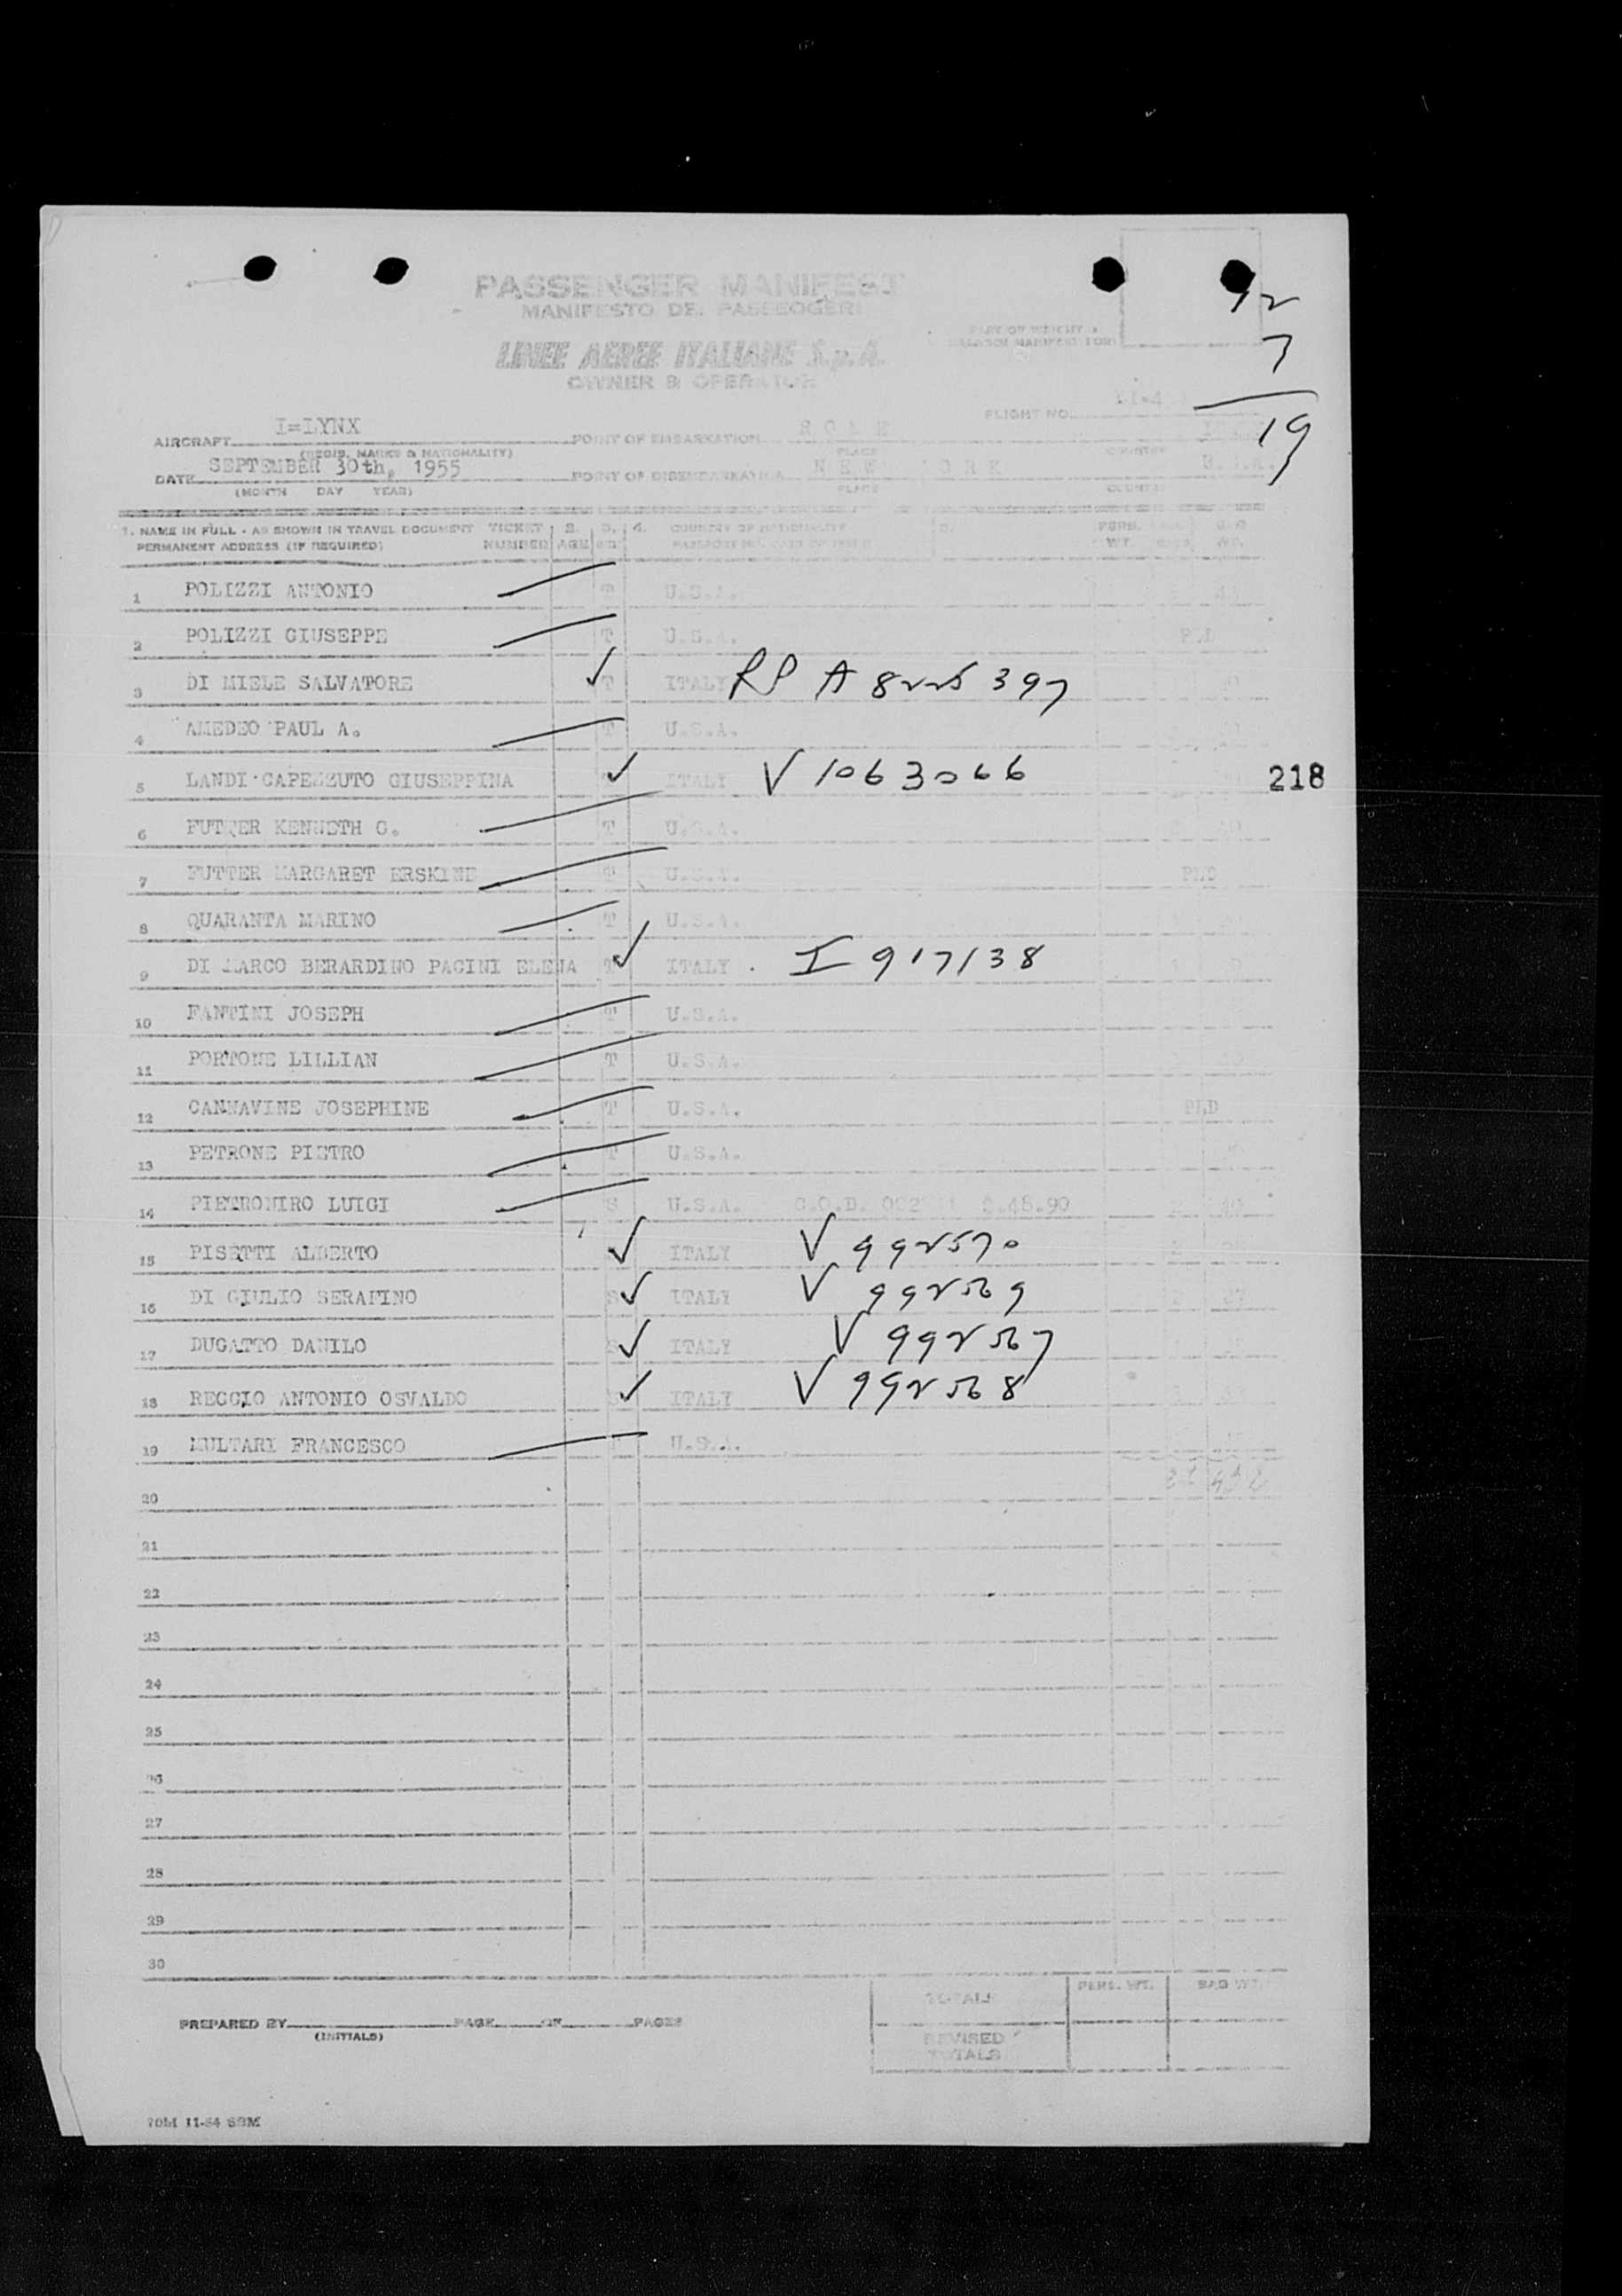 PASSENGER MANIFEST
MANIFESTO DEI PASSEGGERI
LINEE AEREE ITALIANE S.p.A.
OWNER & OPERATOR
12
7
19
FLIGHT NO.
AIRCRAFT I=LYNX POINT OF EMBARKATION ROME
(REGIS. MARKS & NATIONALITY) PLACE COUNTRY
DATE SEPTEMBER 30th, 1955 POINT OF DISEMBARKATION NEW YORK U.S.A.
(MONTH DAY YEAR) PLACE COUNTRY
1. NAME IN FULL - AS SHOWN IN TRAVEL DOCUMENT TICKET 2. 3. 4. COUNTRY OF NATIONALITY PERS.
PERMANENT ADDRESS (IF REQUIRED) NUMBER AGE WT. WT.
1 POLIZZI ANTONIO T U.S.A.
2 POLIZZI GIUSEPPE T U.S.A. PLD
3 DI MIELE SALVATORE T ITALY RP A 8225 397
4 AMEDEO PAUL A. T U.S.A.
5 LANDI CAPEZZUTO GIUSEPPINA ITALY V 1063066
218
6 FUTTER KENNETH G. T U.S.A.
7 FUTTER MARGARET ERSKINE T U.S.A. PLD
8 QUARANTA MARINO T U.S.A.
9 DI MARCO BERARDINO PACINI ELENA T ITALY I 917138
10 FANTINI JOSEPH T U.S.A.
11 PORTONE LILLIAN T U.S.A.
12 CANNAVINE JOSEPHINE T U.S.A. PLD
13 PETRONE PIETRO T U.S.A.
14 PIETRONIRO LUIGI S U.S.A. C.O.D.
15 PISETTI ALBERTO ITALY V 992570
16 DI GIULIO SERAFINO S ITALY V 992569
17 DUGATTO DANILO S ITALY V 992567
18 REGGIO ANTONIO OSVALDO S ITALY V 992568
19 MULTARI FRANCESCO U.S.A.
20
21
22
23
24
25
26
27
28
29
30
TOTALS PERS. WT. BAG WT.
PREPARED BY PAGE OF PAGES
(INITIALS)
REVISED
TOTALS
70M 11-54 SBM